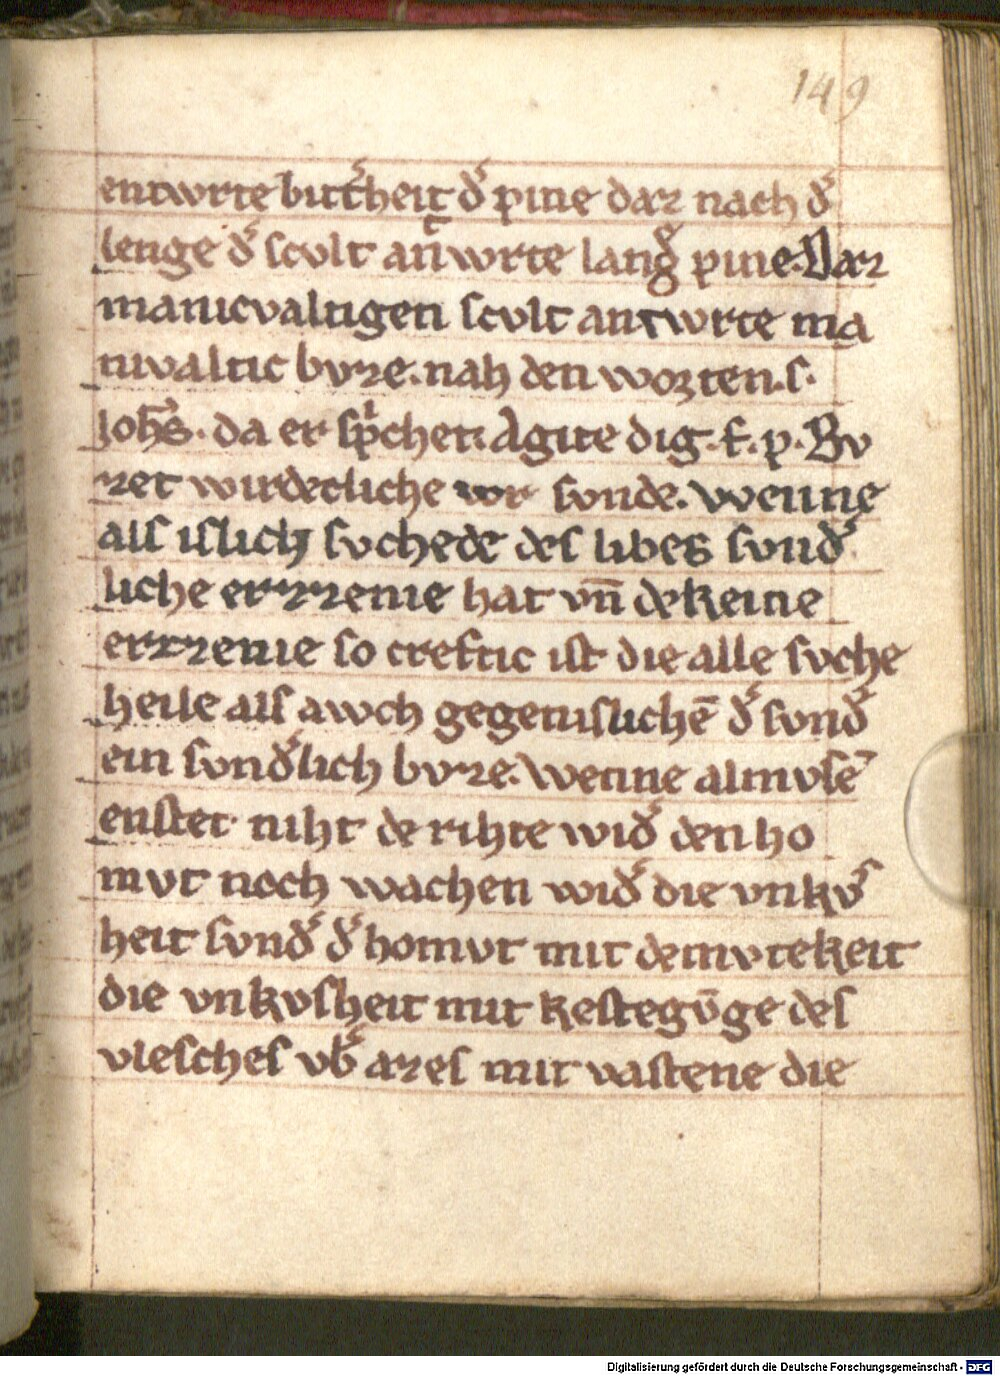 149
entwrte bitt͛heit d͛ pine dar nach d͛
lenge d͛ scvlt an̄twrte lang͛ pine. Dar
manicvaltigen scvlt antwrte ma
nivaltic bvze. nah den worten. s.
Joh̄s. da er sp̲chet. Agite dig. f. p. Bv
zet wirdecliche vor svnde. wenne
als islich svchede des libes svnd͛
liche erzzenie hat vn̄ dekeine
erzzenie so creftic ist die alle svche
heile als awch gegenislichē d͛ svnd͛
ein svnd͛lich bvze. wenne almvsē
enstet niht de rihte wid͛ den ho
mvt noch wachen wid͛ die vnkvs
heit svnd͛ d͛ homvt mit demvtekeit
die vnkvsheit mit kestegv̄ge des
vlesches vb͛ azes mit vastene die
Digitalisierung gefördert durch die Deutsche Forschungsgemeinschaft - DFG